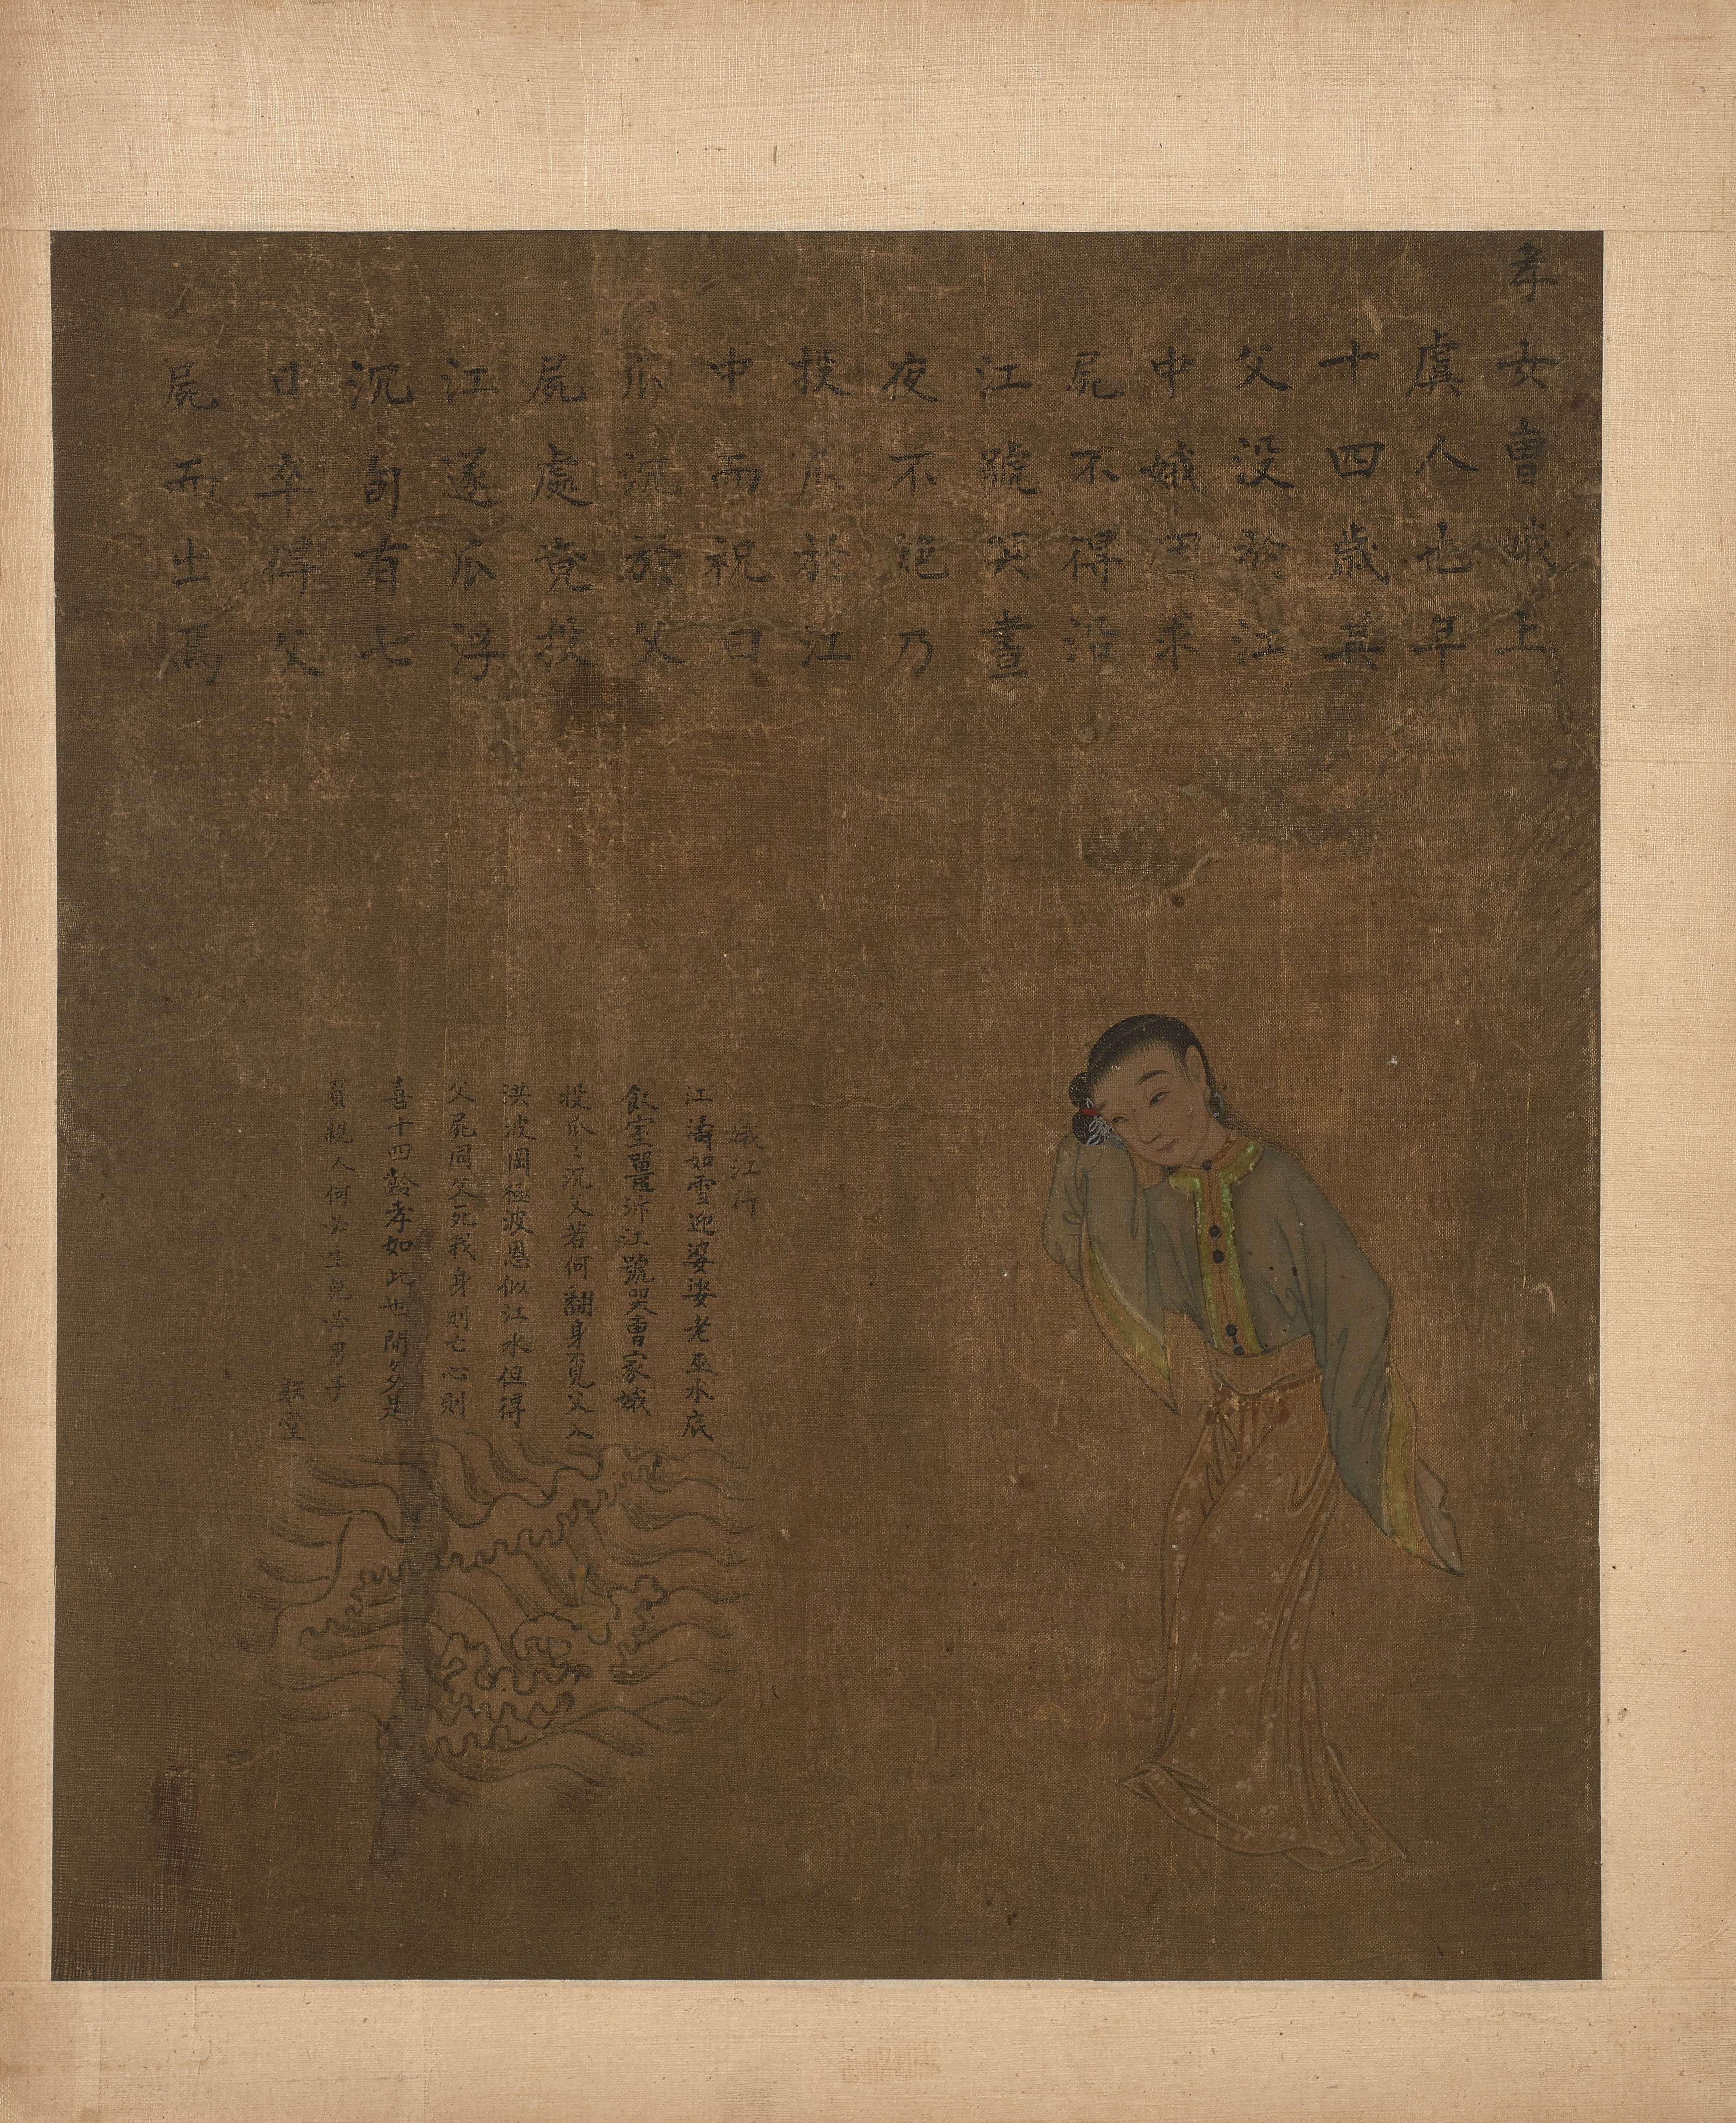 孝女曹娥上
虞人也年
十四歲其
父沒於江
中娥因求
屍不得沿
江號哭晝
夜不絕乃
投瓜於江
中而祝曰
瓜沉於父
屍處竟投
江遂瓜浮
沉旬有七
日卒得父
屍而出焉
娥江行
江濤如雪迎婆娑老巫水底
飲室罍泝江號哭曹家娥
投瓜々沉父若何翻身覓父入
洪波罔極波恩似江水但得
父屍同父死我身則亡心則
喜十四齡孝如此世間多是
負親人何必生兒必男子